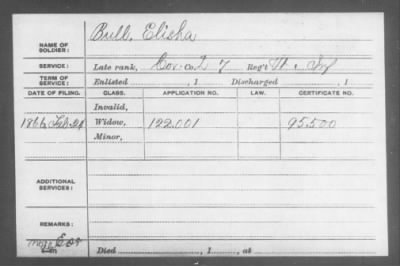 NAME OF SOLDIER: Bull, Elisha
SERVICE: Late rank, Co. 7 Reg't Inf
TERM OF SERVICE: Enlisted , 1 Discharged , 1
DATE OF FILING. CLASS. APPLICATION NO. LAW. CERTIFICATE NO.
Invalid,
1866 Feb Widow, 122.001 95.500
Minor,
ADDITIONAL SERVICES:
REMARKS:
Died , 1 , at